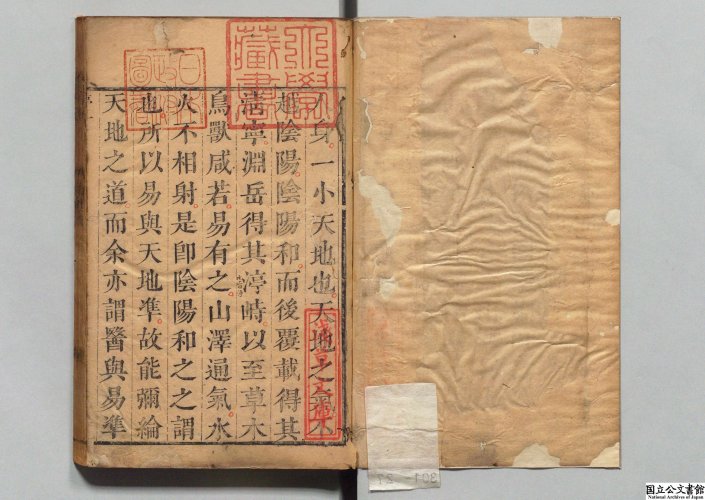 人身一小天地也天地之氣不
越陰陽陰陽和而後覆載得其
淸寧淵岳得其渟峙以至草木
鳥獸咸若易有之山澤通氣水
火不相射是卽陰陽和之之謂
也所以易與天地準故能彌綸
天地之道而余亦謂醫與易準
醫學
藏書
日本
政府
圖書
301
国立公文書館
National Archives of Japan